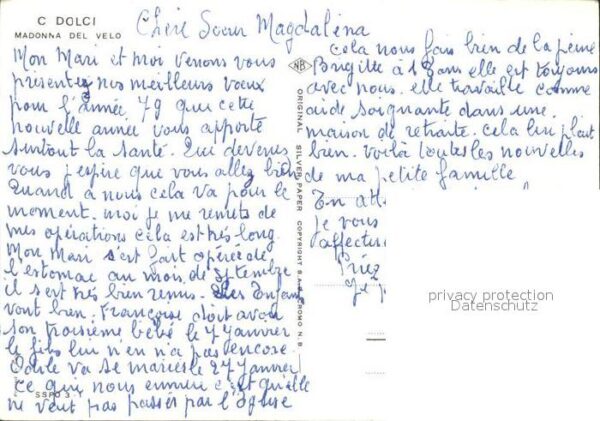 C DOLCI
MADONNA DEL VELO
Chère Soeur Magdalena
Mon Mari et moi venons vous
présentez nos meilleurs voeux
pour l'année 79 que cette
nouvelle année vous apporte
surtout la santé. Qui devenez
vous j'espire que vous allez bien
Quand à nous cela va pour le
moment. moi je me remets de
mes opérations cela est très long
Mon Mari s'est fait opérée de
l'estomac au mois de septembre
il s'est très bien remis. Les Enfants
vont bien. Françoise doit avoir
son troisième bébé le 27 janvier
le fils lui n'en n'a pas encore
Odile va se marier le 27 janvier
ce que nous ennuie c'est qu'elle
ne veut pas passer par l'Eglise
SSPO 3
NB
ORIGINAL SILVER PAPER COPYRIGHT S.A.R. PROMO N.B.
Cela nous fais bien de la peine
Brigitte à 18 ans elle est toujours
avec nous. elle travaille comme
aide soignante dans une
maison de retraite. cela lui plait
bien. voilà toutes les nouvelles
de ma petite famille
En att
je vous
affectu
Priez
je p
privacy protection
Datenschutz